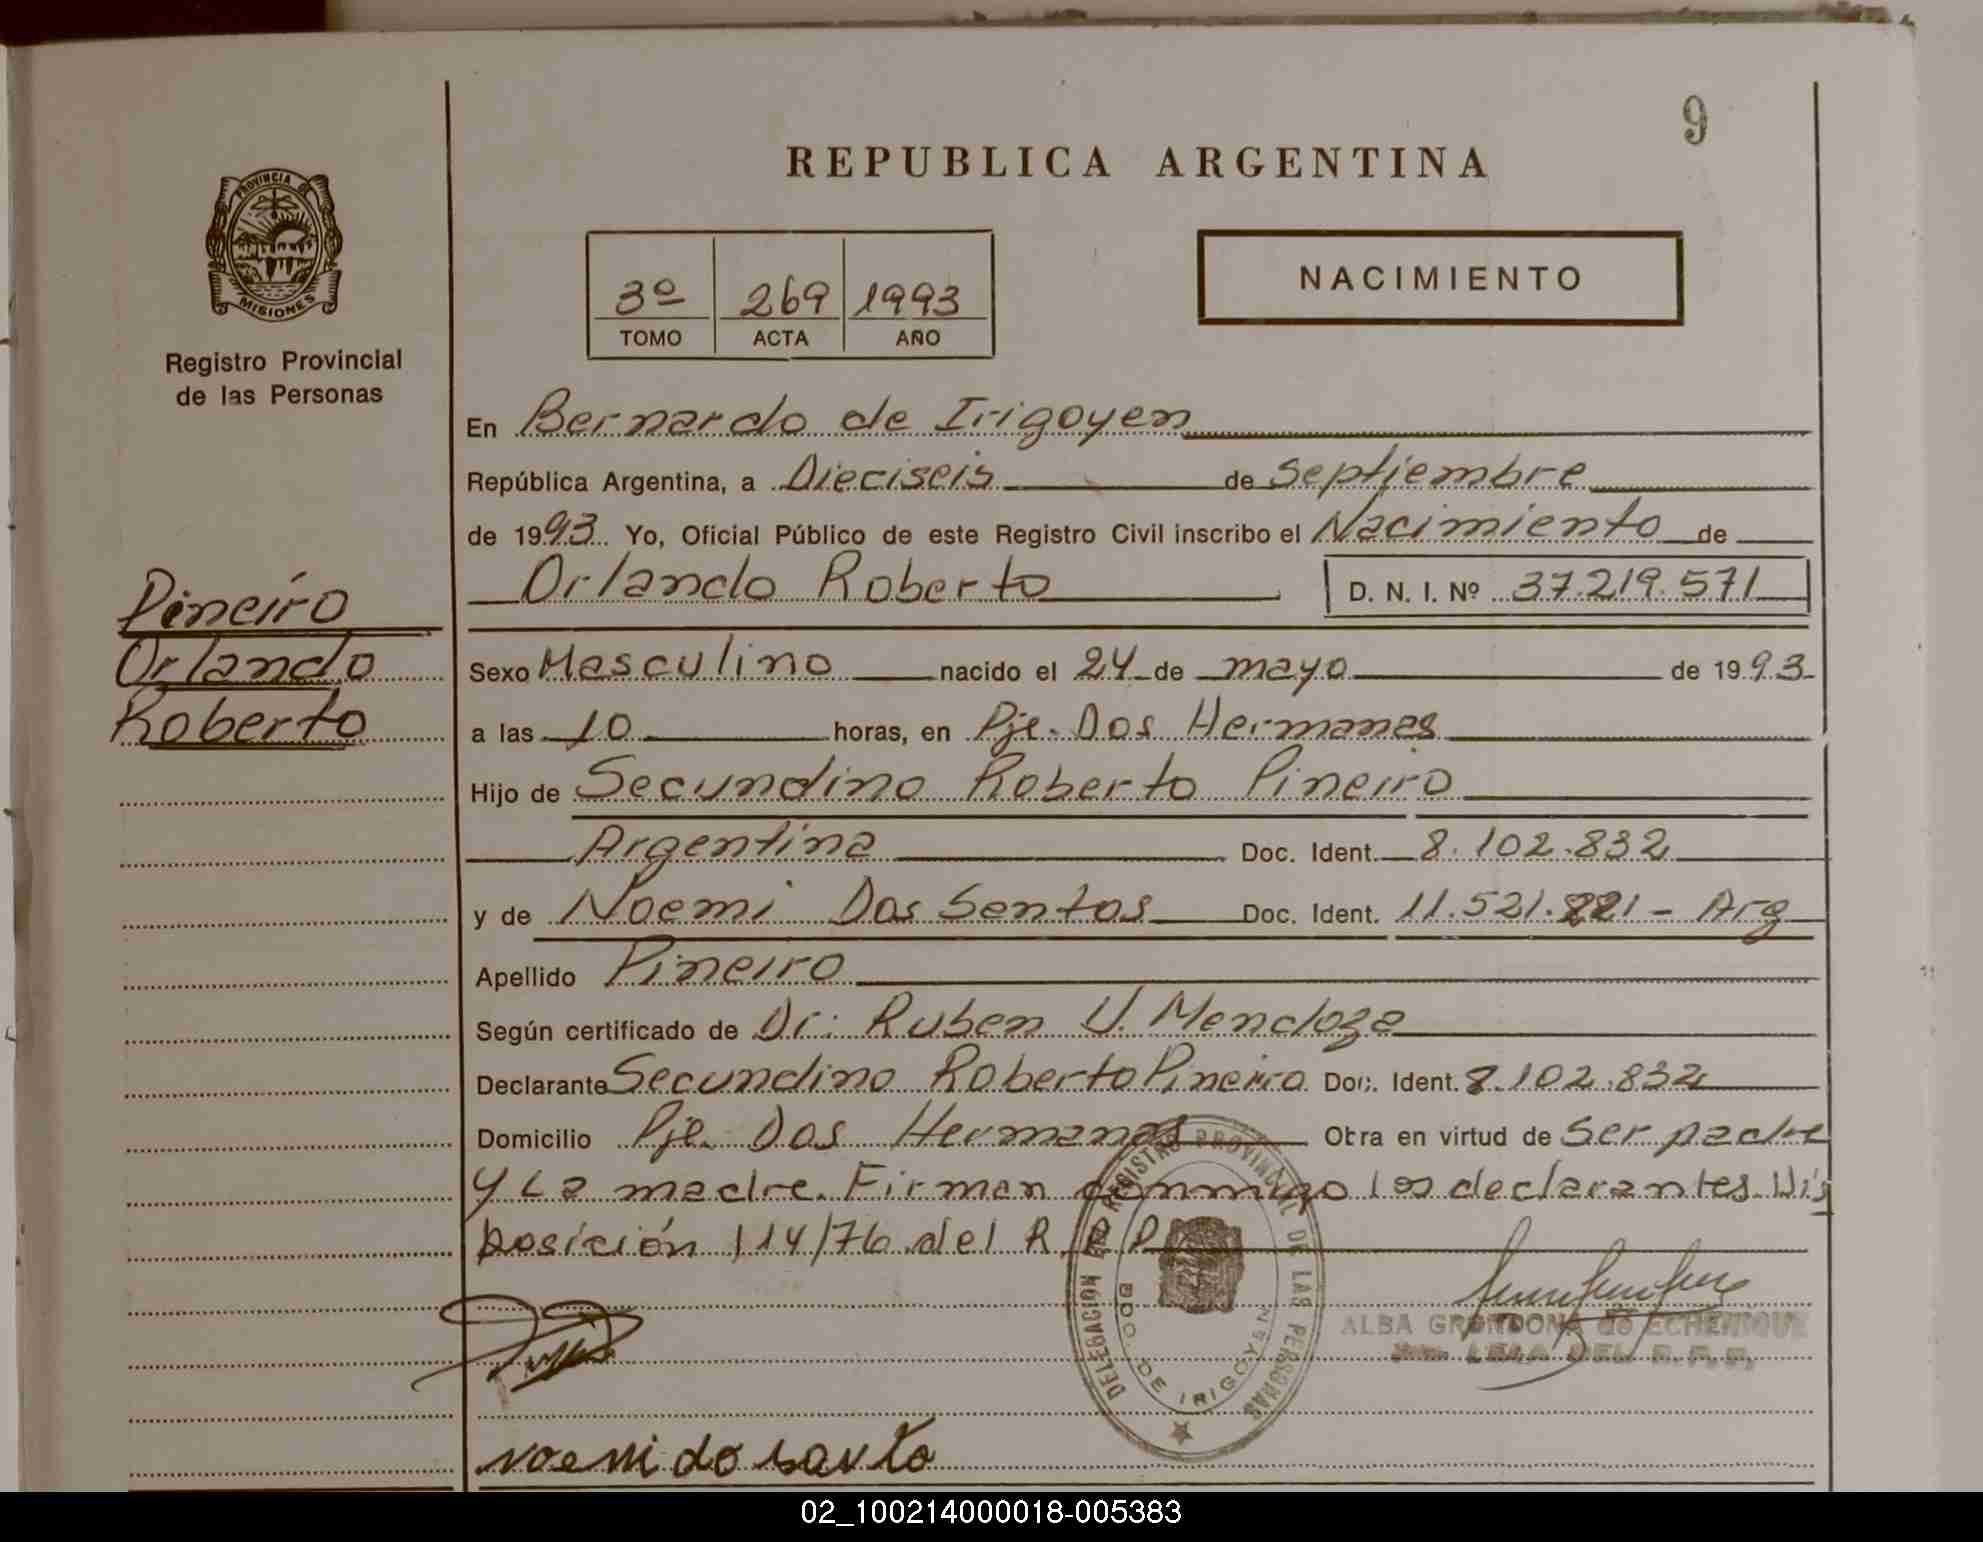 9
REPUBLICA ARGENTINA
PROVINCIA DE
MISIONES
Registro Provincial
de las Personas
3º 269 1993
TOMO ACTA AÑO
NACIMIENTO
En Bernardo de Irigoyen
República Argentina, a Dieciseis de Septiembre
de 1993 Yo, Oficial Público de este Registro Civil inscribo el Nacimiento de
Orlando Roberto D. N. I. Nº 37.219.571
Pineiro
Orlando
Roberto
Sexo Masculino nacido el 24 de mayo de 1993
a las 10 horas, en Pje. Dos Hermanas
Hijo de Secundino Roberto Pineiro
Argentina Doc. Ident. 8.102.832
y de Noemi Dos Santos Doc. Ident. 11.521.221 - Arg
Apellido Pineiro
Según certificado de Dr. Ruben U. Mendoza
Declarante Secundino Roberto Pineiro Doc. Ident. 8.102.832
Domicilio Pje. Dos Hermanas Obra en virtud de Ser padre
y La madre. Firman conmigo los declarantes. Dis
posición 114/76 del R.P.P
DELEGACION DEL REGISTRO PROVINCIAL DE LAS PERSONAS
BDO. DE IRIGOYEN
ALBA GRONDONA de ECHENIQUE
DEL R.P.P.
noemi do santo
02_100214000018-005383